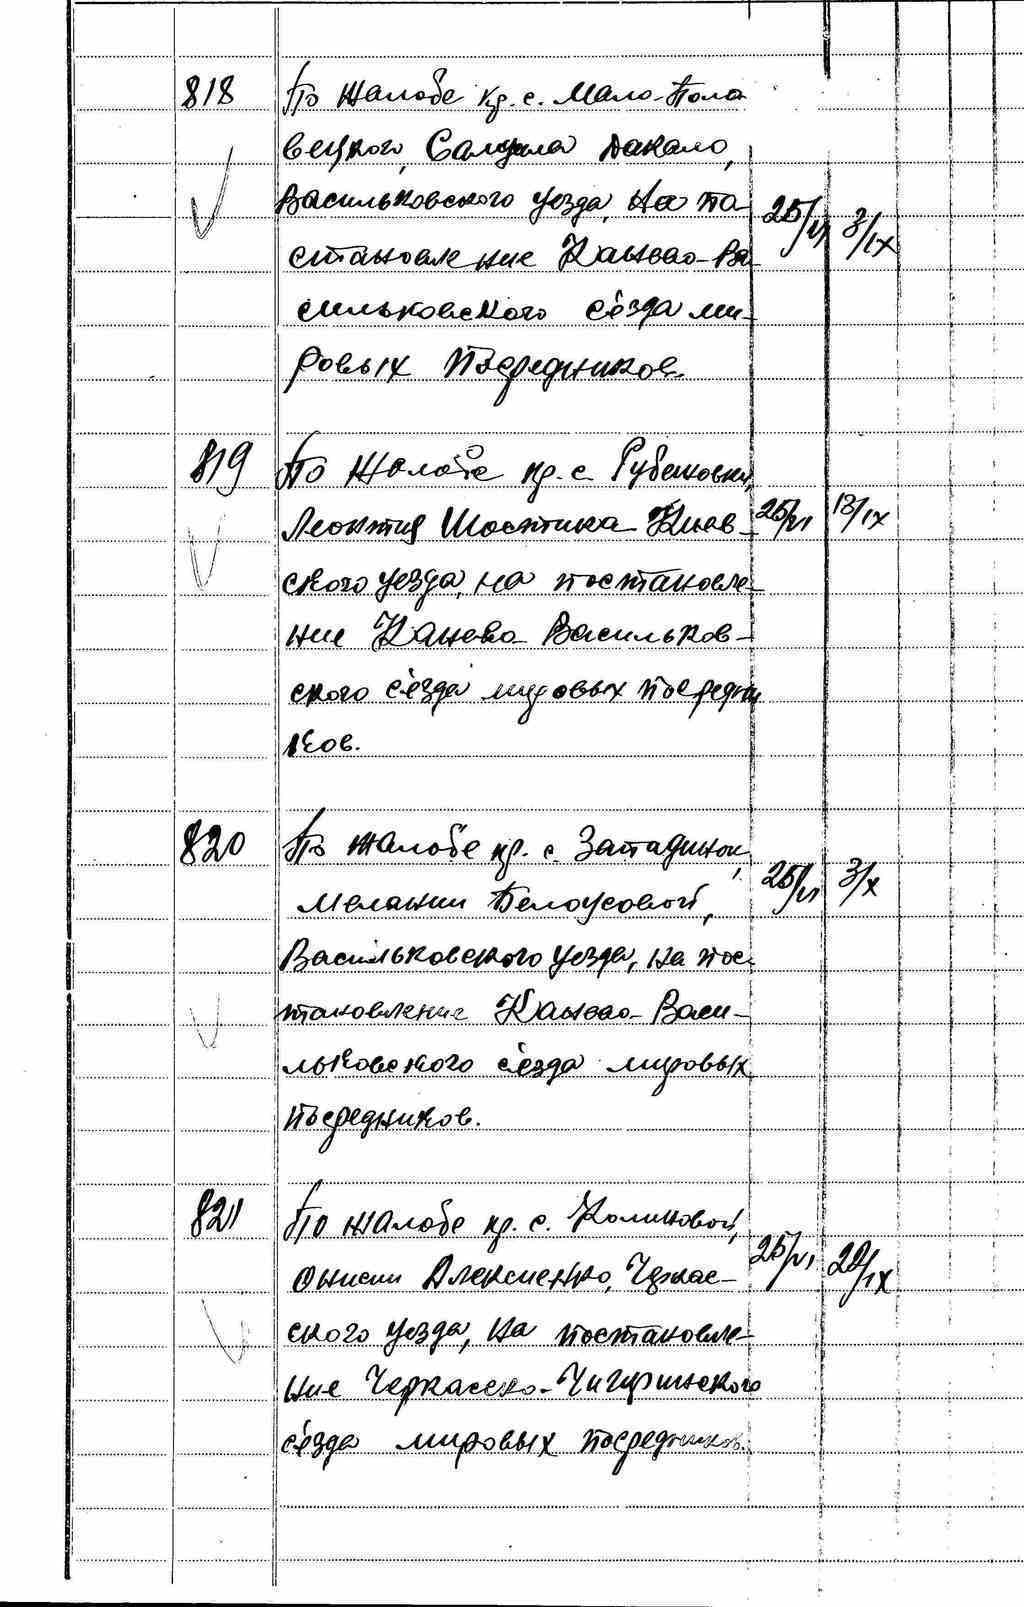 818 По жалобе кр. с. Мало-Поло
вецкого, Дакало,
Васильковского уезда, на по- 25/VI 3/IX
становление Канево-Ва
сильковского сёзда ми-
ровых посредников.
819 По жалобе кр. с. Рубежовки,
Леонтия Шостака Киев- 25/VI 13/IX
ского уезда, на постановле-
ние Канево Васильков-
ского сёзда мировых посредни
ков.
820 По жалобе кр. с. Западинки,
Мелании Белоусовой, 25/VI 3/X
Васильковского уезда, на пос-
тановление Канево-Васи-
льковского сёзда мировых
посредников.
821 По жалобе кр. с.
Онисии Алексиенко, Черкас- 25/VI 20/IX
ского уезда, на постановле-
ние Черкасско-Чигиринского
сёзда мировых посредников.